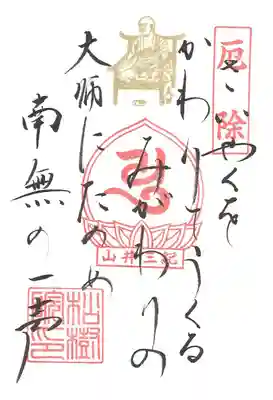 厄除
さいやくを
かわりてうくる
みがわりの
大師にたのめ
南無の一声
紀三井山